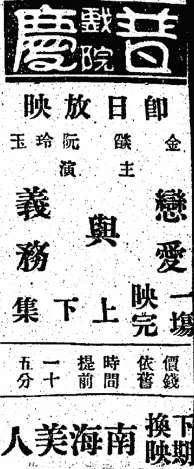 普慶戲院
即日放映
金燄 阮玲玉
主演
戀愛與義務
上下集
一塲映完
價錢依舊 時間提前 一十五分
下期換映
南海美人